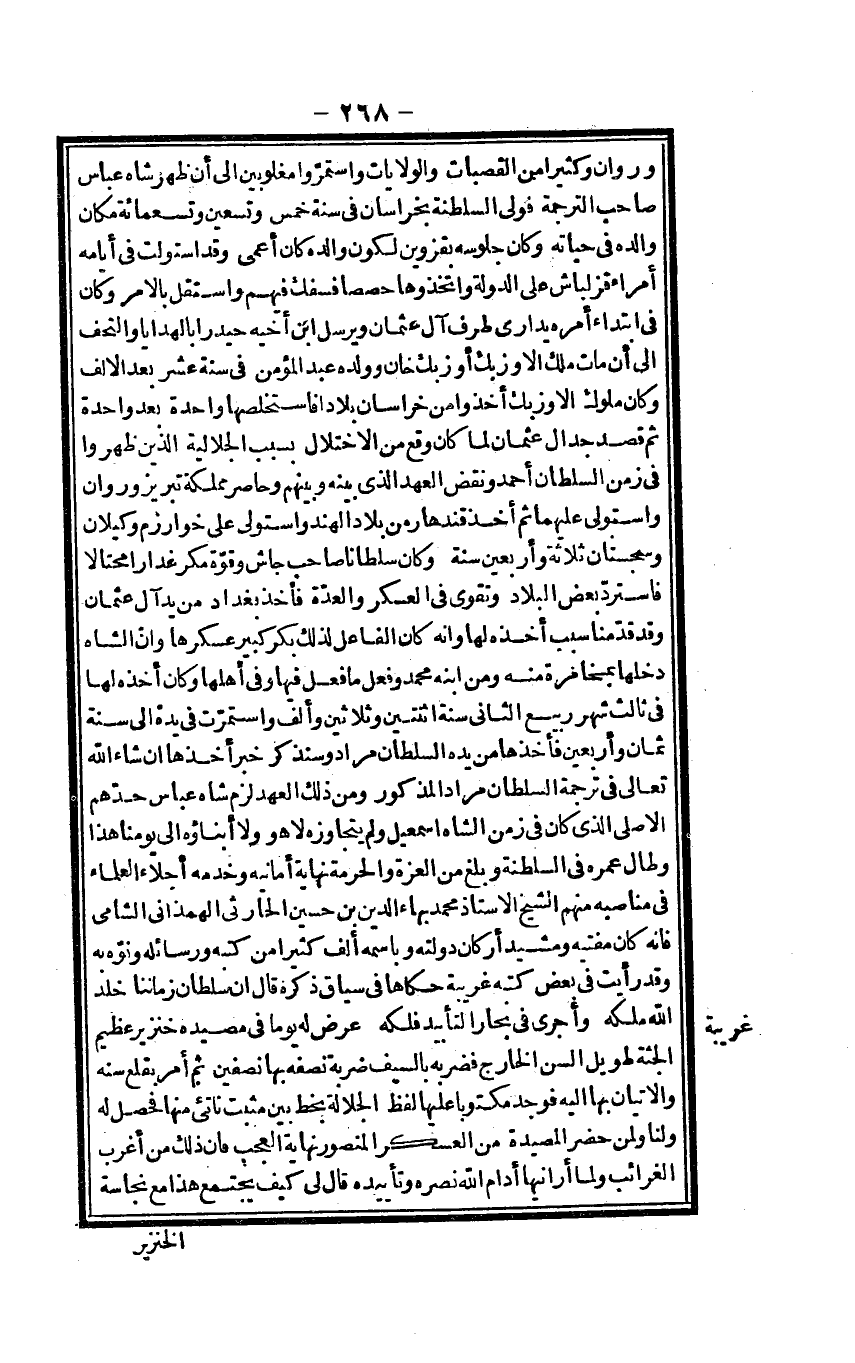 - ٢٦٨ -
وروان وكثيرا من القصبات والولايات واستمرّوا مغلوبين الى أن ظهر شاه عباس
صاحب الترجمة فولى السلطنة بخراسان فى سنة خمس وتسعين وتسعمائة مكان
والده فى حياته وكان جلوسه بقزوين لكون والده كان أعمى وقد استولت فى أيامه
أمراء قزلباش على الدولة واتخذوها حصصا فسفك فيهم واستقل بالامر وكان
فى ابتداء أمره يدارى طرف آل عثمان ويرسل ابن أخيه حيدرا بالهدايا والتحف
الى أن مات ملك الاوزبك أوزبك خان وولده عبد المؤمن فى سنة عشر بعد الالف
وكان ملوك الاوزبك أخذوا من خراسان بلادا فاستخلصها واحدة بعد واحدة
ثم قصد جدال عثمان لما كان وقع من الاختلال بسبب الجلالية الذين ظهروا
فى زمن السلطان أحمد ونقض العهد الذى بينه وبينهم وحاصر مملكة تبريز وروان
واستولى عليهما ثم أخذ قندهاره من بلاد الهند واستولى على خوارزم وكيلان
وسجستان ثلاثة وأربعين سنة وكان سلطانا صاحب جاش وقوّة مكر غدارا محتالا
فاستردّ بعض البلاد وتقوى فى العسكر والعدّة فأخذ بغداد من يد آل عثمان
وقد قدّمنا سبب أخذه لها وانه كان الفاعل لذلك بكر كبير عسكرها وانّ الشاه
دخلها بمخافرة منه ومن ابنه محمد وفعل ما فعل فيها وفى أهلها وكان أخذه لها
فى ثالث شهر ربيع الثانى سنة اثنتين وثلاثين وألف واستمرّت فى يده الى سنة
ثمان وأربعين فأخذها من يده السلطان مراد وسنذكر خبر أخذها ان شاء الله
تعالى فى ترجمة السلطان مراد المذكور ومن ذلك العهد لزم شاه عباس حدّهم
الاصلى الذى كان فى زمن الشاه اسمعيل ولم يتجاوزه لا هو ولا أبناؤه الى يومنا هذا
وطال عمره فى السلطنة وبلغ من العزة والحرمة نهاية أمانيه وخدمه أجلاء العلماء
فى مناصبه منهم الشيخ الاستاذ محمد بهاء الدين بن حسين الحارثى الهمذانى الشامى
فانه كان مفتيه ومشيد أركان دولته وباسمه ألف كثيرا من كتبه ورسائله ونوّه به
وقد رأيت فى بعض كتبه غريبة حكاها فى سياق ذكره قال ان سلطان زماننا خلد
الله ملكه وأجرى فى بحار التأييد فلكه عرض له يوما فى مصيده خنزير عظيم
غريبة
الجثة طويل السن الخارج فضربه بالسيف ضربة نصفه بها نصفين ثم أمر بقلع سنه
والاتيان بها اليه فوجد مكتوبا عليها لفظ الجلالة بخط بين مثبت ناتئ منها فحصل له
ولنا ولمن حضر المصيدة من العسكر المنصور نهاية العجب فان ذلك من أغرب
الغرائب ولما أرانيها أدام الله نصره وتأييده قال لى كيف يجتمع هذا مع نجاسة
الخنزير